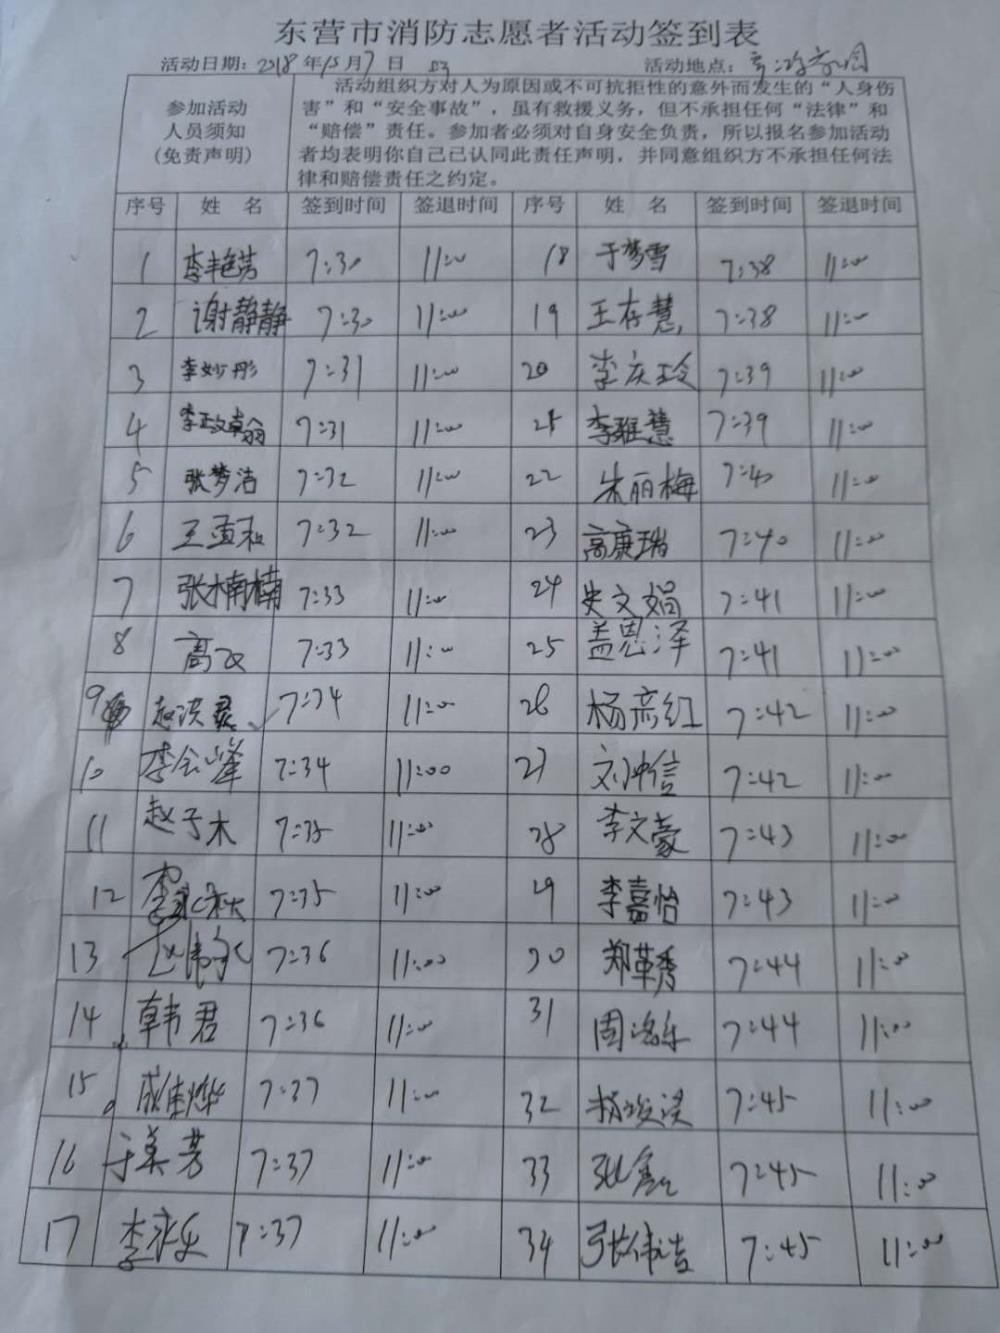 东营市消防志愿者活动签到表
活动日期：2018年10月7日 活动地点：
参加活动
人员须知
(免责声明)
活动组织方对人为原因或不可抗拒性的意外而发生的“人身伤
害”和“安全事故”，虽有救援义务，但不承担任何“法律”和
“赔偿”责任。参加者必须对自身安全负责，所以报名参加活动
者均表明你自己已认同此责任声明，并同意组织方不承担任何法
律和赔偿责任之约定。
序号 姓 名 签到时间 签退时间 序号 姓 名 签到时间 签退时间
1 李艳芳 7:30 11:00 18 于梦雪 7:38 11:00
2 谢静静 7:30 11:00 19 王存慧 7:38 11:00
3 李妙彤 7:31 11:00 20 李庆玲 7:39 11:00
4 7:31 11:00 21 李雅慧 7:39 11:00
5 张梦洁 7:32 11:00 22 朱丽梅 7:40 11:00
6 7:32 11:00 23 高康瑞 7:40 11:00
7 张楠楠 7:33 11:00 24 史文娟 7:41 11:00
8 7:33 11:00 25 盖恩泽 7:41 11:00
9 7:34 11:00 26 杨彦红 7:42 11:00
10 李会峰 7:34 11:00 27 刘冲信 7:42 11:00
11 赵子木 7:35 11:00 28 李文豪 7:43 11:00
12 7:35 11:00 29 李嘉怡 7:43 11:00
13 7:36 11:00 30 郑革秀 7:44 11:00
14 韩君 7:36 11:00 31 7:44 11:00
15 成佳烨 7:37 11:00 32 7:45 11:00
16 于美芳 7:37 11:00 33 7:45 11:00
17 李永乐 7:37 11:00 34 张伟吉 7:45 11:00